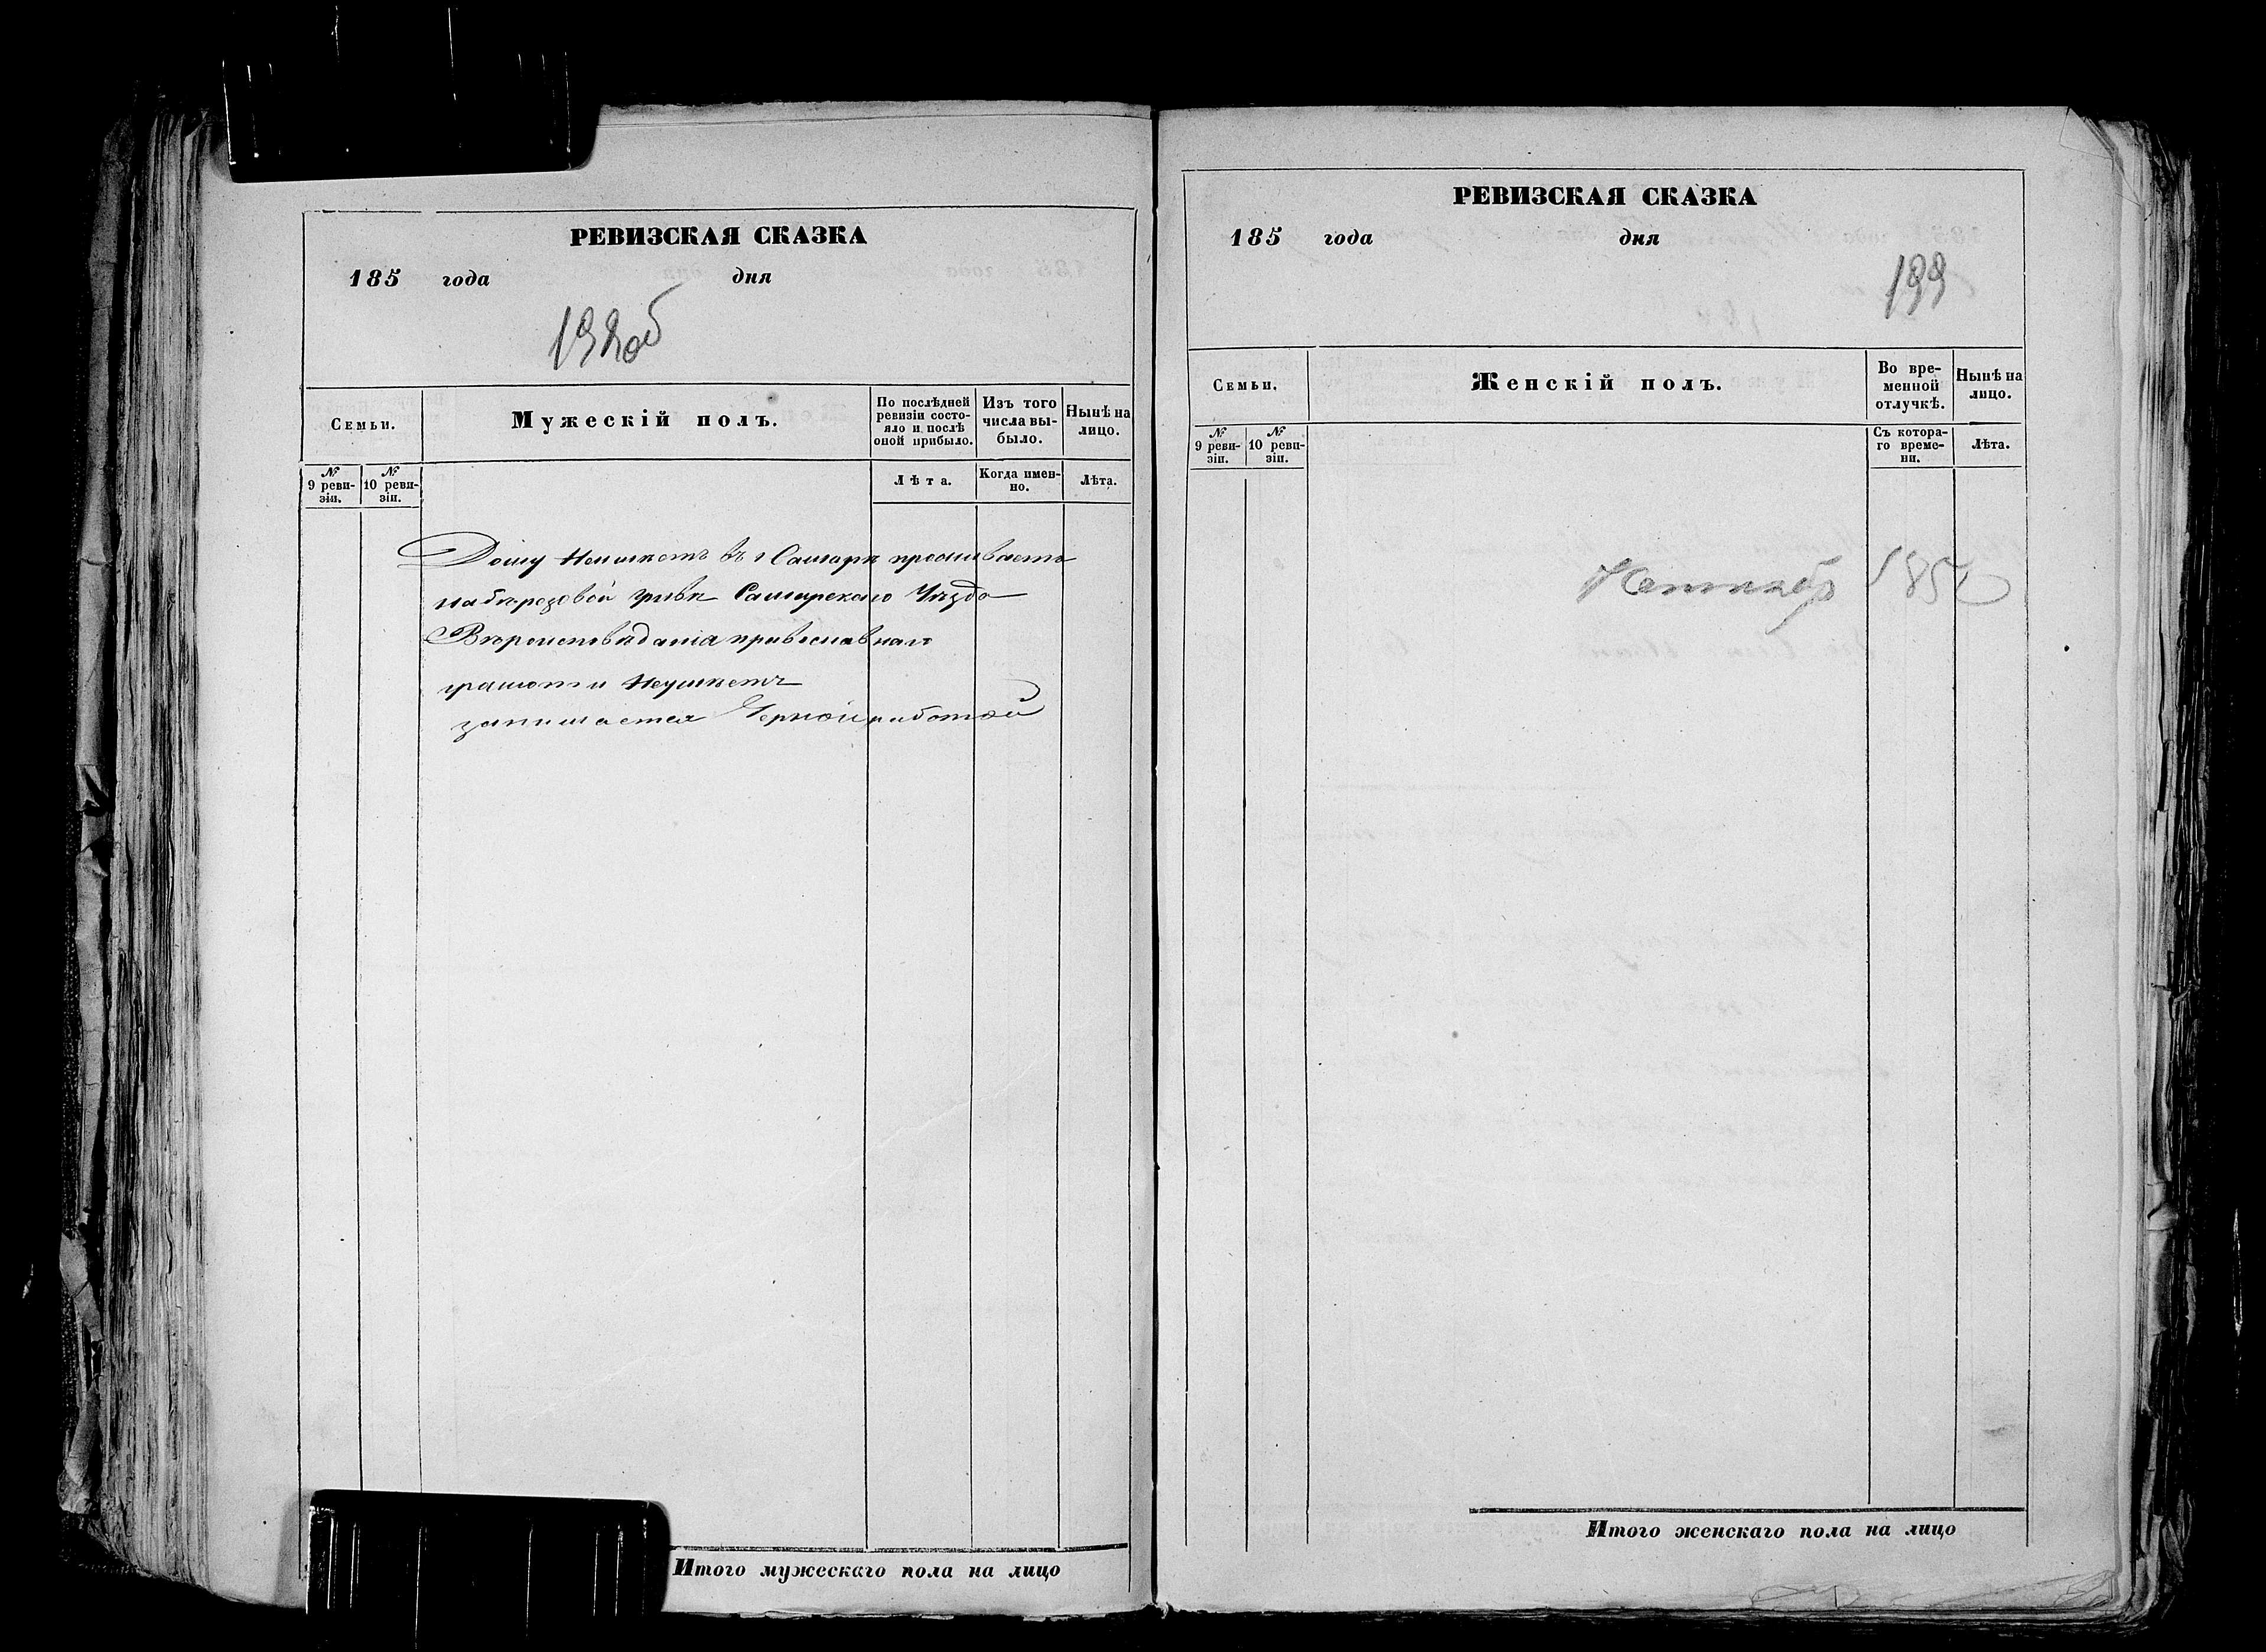 РЕВИЗСКАЯ СКАЗКА
185 года дня
192об
Семьи.
Мужескій полъ.
По послѣдней ревизіи состо-
яло и послѣ
оной прибыло.
Изъ того
числа вы-
было.
Нынѣ на
лицо.
№
9 реви-
зіи.
№
10 реви-
зіи.
Лѣта.
Когда имен-
но.
Лѣта.
Дому Неимѣетъ въ г Самарѣ проживаетъ
на березовой гривѣ Самарскаго Уѣзда
Вѣроисповѣданія православнаго
грамоти Неумѣетъ
занимается Черной работой
Итого мужескаго пола на лицо
РЕВИЗСКАЯ СКАЗКА
185 года дня
193
Семьи.
Женскій полъ.
Во вре-
менной
отлучкѣ.
Нынѣ на
лицо.
№
9 реви-
зіи.
№
10 реви-
зіи.
Съ котора-
го време-
ни.
Лѣта.
185
Итого женскаго пола на лицо